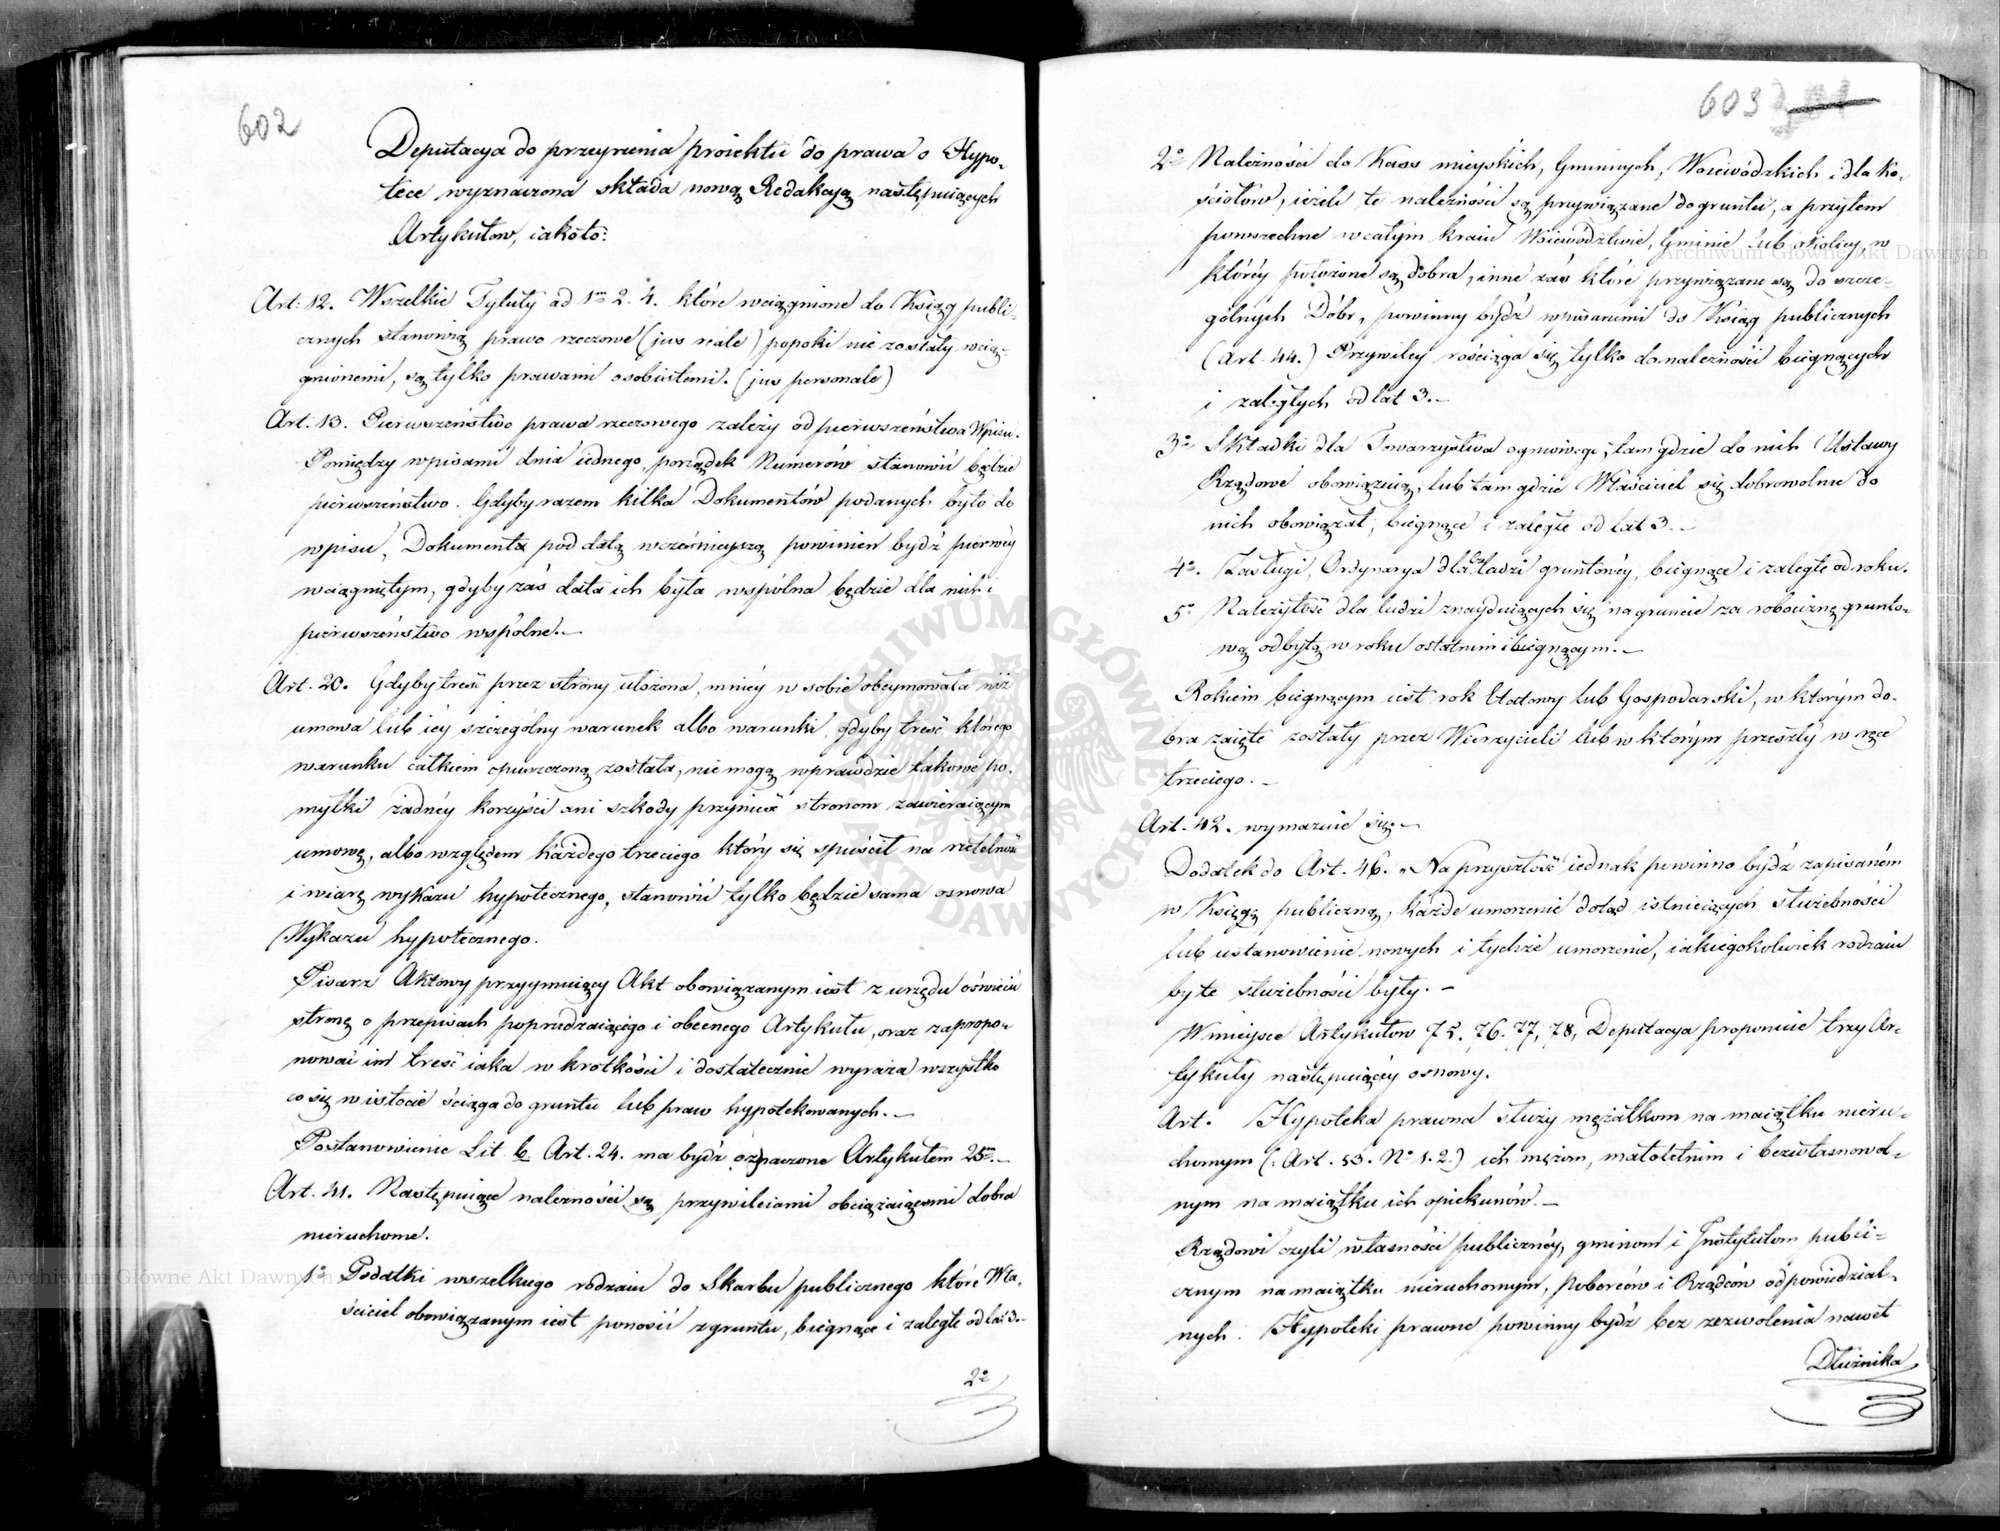 602
Deputacya do przeyrzenia proiektu do prawa o Hypo-
tece wyznaczona składa nową Redakcyą następuiących
Artykułow, iakoto:
Art. 12. Wszelkie Tytuły ad 1m 2. 4. które wciągnione do Ksiąg publi-
cznych stanowią prawo rzeczowe (jus reale) popoki nie zostały wcią-
gnionemi, są tylko prawami osobistemi. (jus personale)
Art. 13. Pierwszeństwo prawa rzeczowego zależy od pierwszeństwa Wpisu.
Pomiędzy wpisami dnia iednego, porządek Numerów stanowić będzie
pierwszeństwo. Gdyby razem kilka Dokumentów podanych było do
wpisu, Dokument pod datą wcześnieyszą powinien bydź pierwey
wciągniętym, gdyby zaś data ich była wspólna będzie dla nich i
pierwszeństwo wspólne.—
Art. 20. Gdyby treść przez strony ułożona, mniéy w sobie obeymowała niż
umowa lub iéy szczególny warunek albo warunki, gdyby treść którego
warunku całkiem opuszczoną została, nie mogą wprawdzie takowe po-
myłki żadnéy korzyści ani szkody przynieść stronom zawieraiącym
umowę, albo względem każdego trzeciego który się spuścił na rzetelność
i wiarę wykazu hypotecznego, stanowić tylko będzie sama osnowa
Wykazu hypotecznego.
Pisarz Aktowy przyymuiący Akt obowiązanym iest z urzędu oświecić
stronę o przepisach poprzedzaiącego i obecnego Artykułu, oraz zapropo-
nować im treść iaka w krótkości i dostatecznie wyraża wszystko
co się w istocie ściąga do gruntu lub praw hypotekowanych.—
Postanowienie Lit. b. Art. 24. ma bydź oznaczone Artykułem 25m.—
Art. 41. Następuiące należności są przywileiami obciążaiącemi dobra
nieruchome.
1o Podatki wszelkiego rodzaiu do Skarbu publicznego które Wła-
ściciel obowiązanym iest ponosić z gruntu, biegnące i zaległe od lat 3.—
2o
603
2o Należności do Kass mieyskich, Gminnych, Woiewódzkich i dla Ko-
ściołów, ieżeli te należności są przywiązane do gruntu, a przytem
powszechne w całym kraiu Woiewództwie, Gminie lub okolicy, w
któréy położone są dobra, inne zaś które przywiązane są do szcze-
gólnych Dóbr, powinny bydź wpisanemi do Ksiąg publicznych
(Art. 44.) Przywiley rościąga się tylko do należności biegnących
i zaległych od lat 3.—
3o Składki dla Towarzystwa ogniowego, tam gdzie do nich Ustawy
Rządowe obowiązuią, lub tam gdzie Właściciel się dobrowolnie do
nich obowiązał, biegnące i zaległe od lat 3.—
4o. Zasługi, Ordynarya dla Czeladzi gruntowéy, biegnące i zaległe od roku.
5o Należytość dla ludzi znayduiących się na gruncie za robociznę grunto-
wą odbytą w roku ostatnim i biegnącym.—
Rokiem biegnącym iest rok Etatowy lub Gospodarski, w którym do-
bra zaięte zostały przez Wierzycieli lub w którym przeszły w ręce
trzeciego.—
Art. 42. wymazuie się.—
Dodatek do Art. 46. „Na przyszłość iednak powinno bydź zapisaném
w Księgę publiczną, każde umorzenie dotąd istnieiących służebności
lub ustanowienie nowych i tychże umorzenie, iakiegokolwiek rodzaiu
by te służebności były.—
W mieysce Artykułow 75. 76. 77, 78, Deputacya proponuie trzy Ar-
tykuły następuiącéy osnowy.
Art. Hypoteka prawna służy mężatkom na maiątku nieru-
chomym (: Art. 53. No 1. 2.) ich mężow, małoletnim i bezwłasnowol-
nym na maiątku ich opiekunów.—
Rządowi czyli własności publicznéy, gminom i Instytutom publi-
cznym na maiątku nieruchomym, Poborców i Rządców odpowiedzial-
nych. Hypoteki prawne powinny bydź bez zezwolenia nawet
Dłużnika
ARCHIWUM GŁÓWNE AKT DAWNYCH
Archiwum Główne Akt Dawnych
Archiwum Główne Akt Dawnych